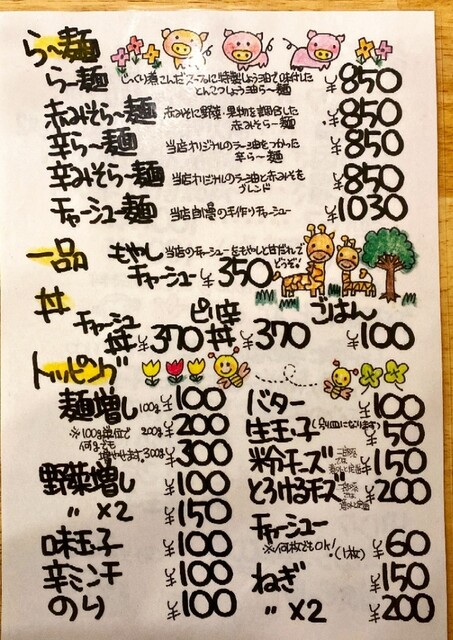 ら〜麺
ら〜麺 じっくり煮こんだスープに特製しょう油で味付した とんこつしょう油ら〜麺 ¥850
赤みそら〜麺 赤みそに野菜・果物を調合した 赤みそら〜麺 ¥850
辛ら〜麺 当店オリジナルのラー油をつかった 辛ら〜麺 ¥850
辛みそら〜麺 当店オリジナルのラー油と赤みそを ブレンド ¥850
チャーシュー麺 当店自慢の手作りチャーシュー ¥1030
一品
もやし チャーシュー 当店のチャーシューをもやしと甘だれで どうぞ! ¥350
丼
チャーシュー丼 ¥370 ピリ辛丼 ¥370 ごはん ¥100
トッピング
麺増し 100g ¥100
※100g単位で 何gでも 増やせます。 200g ¥200
300g ¥300
野菜増し ¥100
〃 ×2 ¥150
味玉子 ¥100
辛ミンチ ¥100
のり ¥100
バター ¥100
生玉子 (別皿になります) ¥50
粉チーズ ¥150
とろけるチーズ ¥200
チャーシュー ※何枚でもOK! (1枚) ¥60
ねぎ ¥150
〃 ×2 ¥200